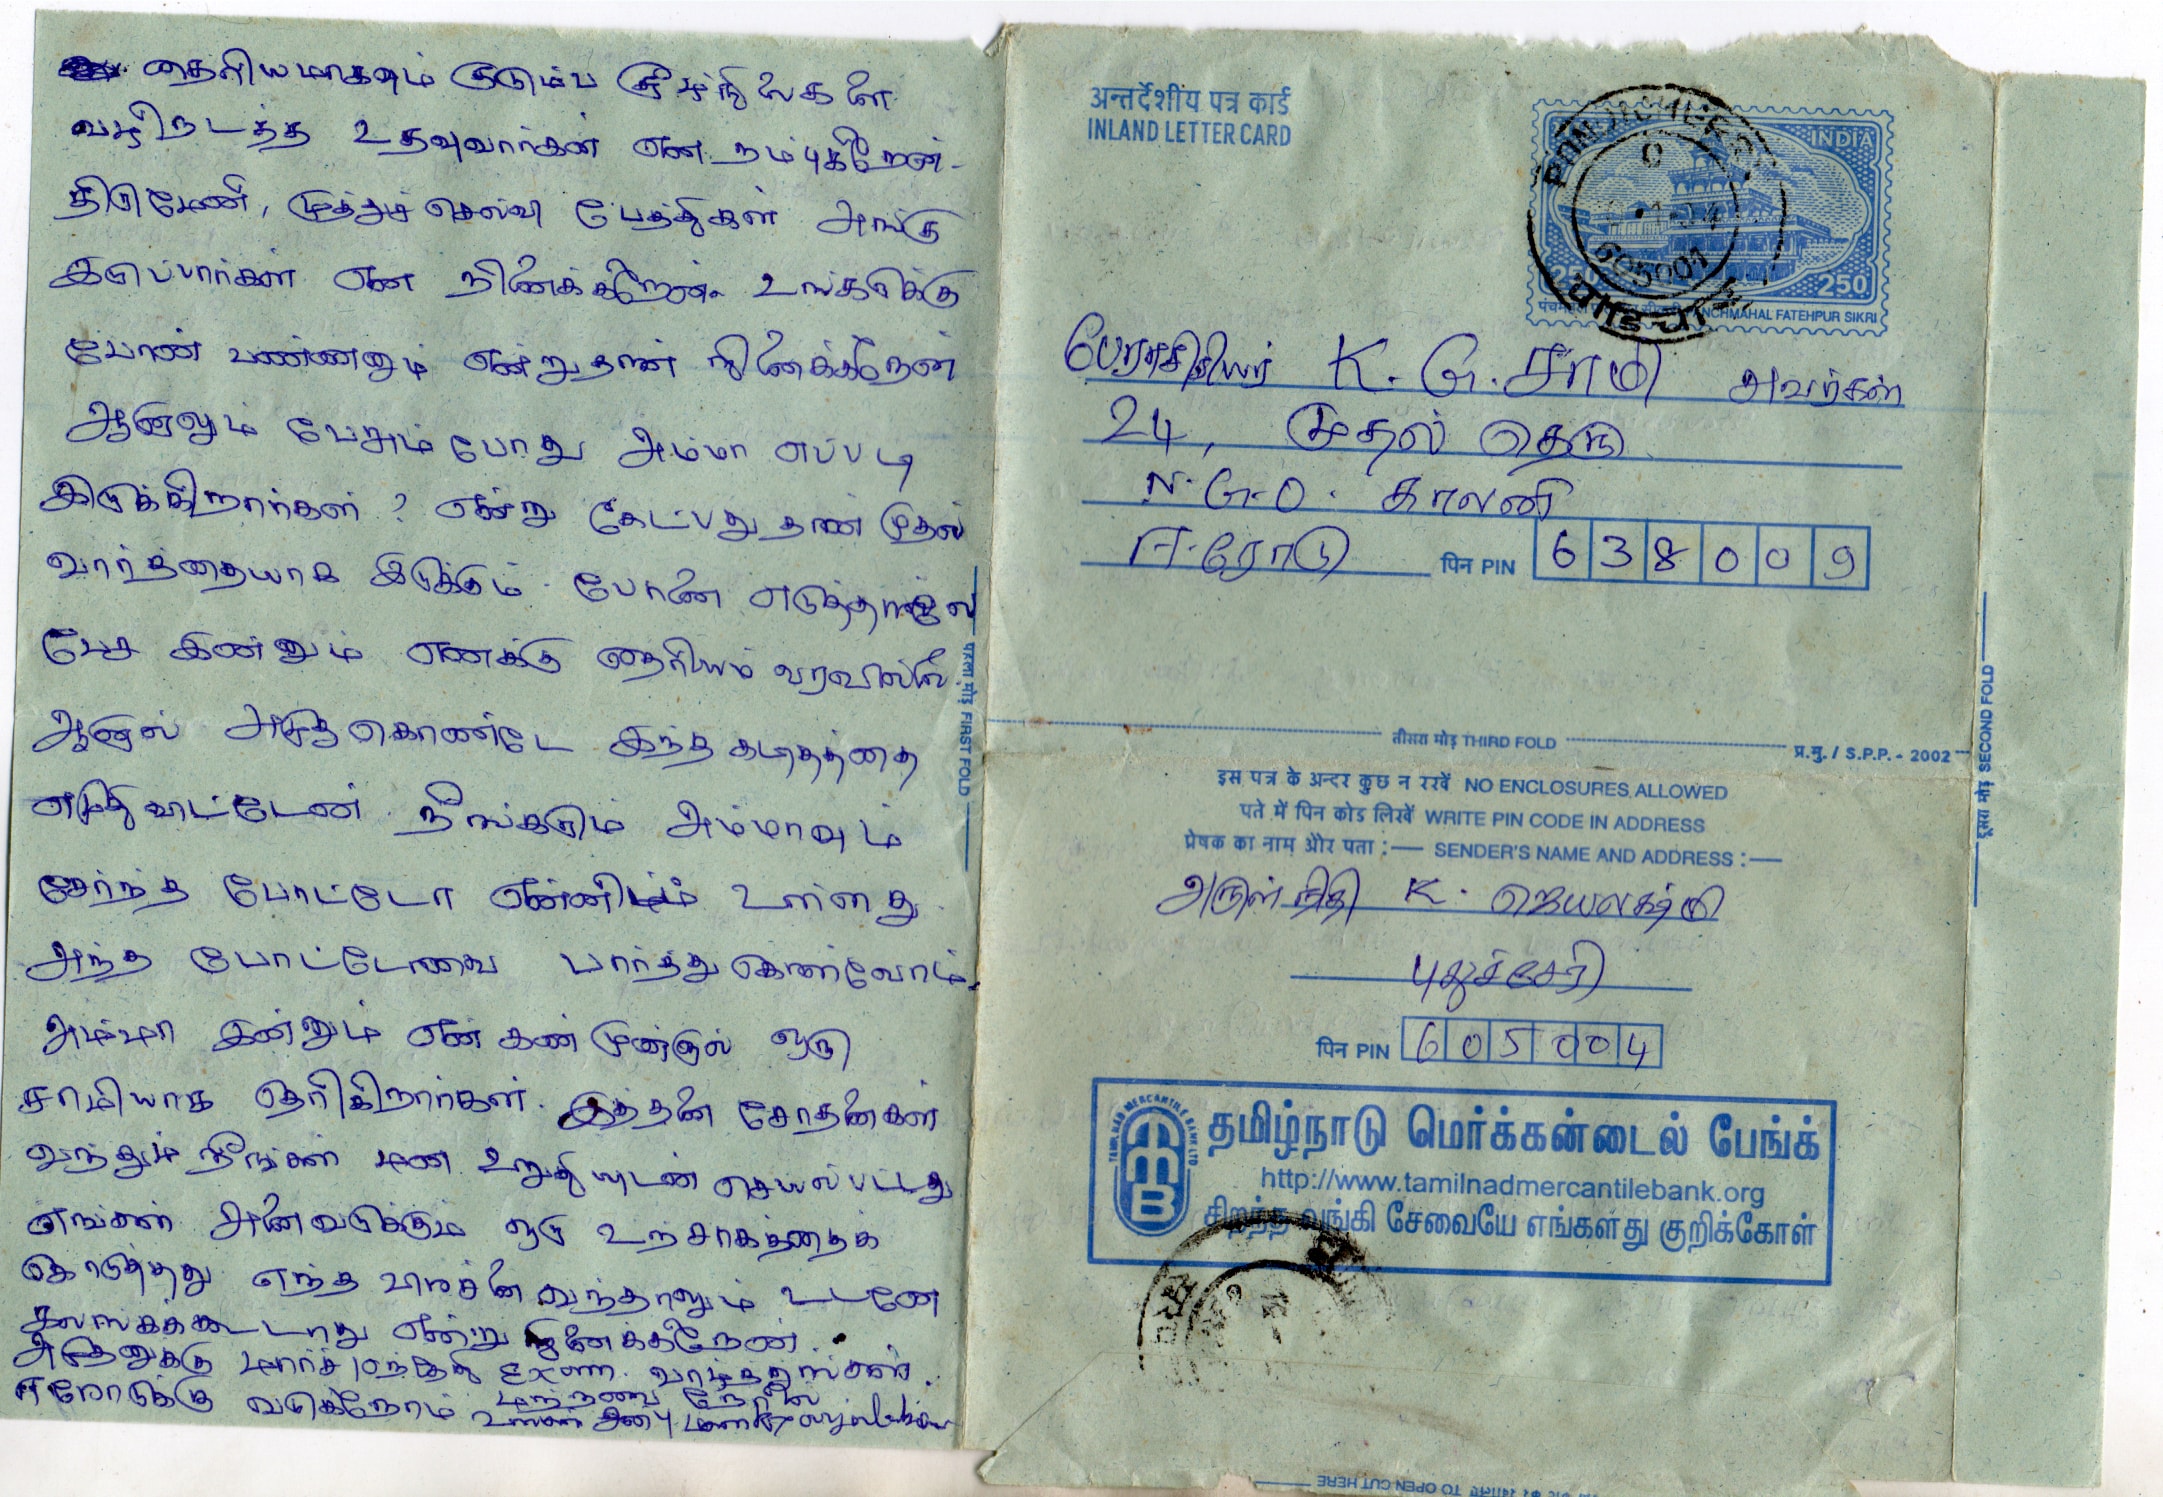 தைரியமாகவும் குடும்ப சூழ்நிலைகளை
வழிநடத்த உதவுவார்கள் என நம்புகிறேன்.
திருமேனி, முத்துச்செல்வி பேத்திகள் அங்கு
இருப்பார்கள் என நினைக்கிறேன். உங்களுக்கு
போன் பண்ணனும் என்றுதான் நினைக்கிறேன்
ஆனாலும் பேசும்போது அம்மா எப்படி
இருக்கிறார்கள்? என்று கேட்பது தான் முதல்
வார்த்தையாக இருக்கும். போனை எடுத்தாலே
பேச இன்னும் எனக்கு தைரியம் வரவில்லை.
ஆனால் அழுது கொண்டே இந்த கடிதத்தை
எழுதிவிட்டேன் நீங்களும் அம்மாவும்
சேர்ந்த போட்டோ என்னிடம் உள்ளது
அந்த போட்டோவை பார்த்து கொள்வோம்.
அம்மா இன்னும் என் கண் முன்னால் ஒரு
சாமியாக தெரிகிறார்கள். இத்தனை சோதனைகள்
வந்தும் நீங்கள் மன உறுதியுடன் செயல்பட்டது
எங்கள் அனைவருக்கும் ஒரு உற்சாகத்தைக்
கொடுத்தது எந்த பிரச்னை வந்தாலும் உடனே
கலங்கக்கூடாது என்று நினைக்கிறேன்.
மார்ச் 10ந்தேதி வாழ்த்துங்கள்.
ஈரோடுக்கு வருகிறோம் மற்றவை நேரில்
உங்கள் அன்பு மகள்
अन्तर्देशीय पत्र कार्ड
INLAND LETTER CARD
INDIA
250 250
PANCHMAHAL FATEHPUR SIKRI
605001
பேராசிரியர் K. G. சாமி அவர்கள்
24, முதல் தெரு
N. G. O. காலனி
ஈரோடு
पिन PIN 638009
पहला मोड़ FIRST FOLD
तीसरा मोड़ THIRD FOLD
प्र.मु. / S.P.P. - 2002
दूसरा मोड़ SECOND FOLD
इस पत्र के अन्दर कुछ न रखें NO ENCLOSURES ALLOWED
पते में पिन कोड लिखें WRITE PIN CODE IN ADDRESS
प्रेषक का नाम और पता :— SENDER'S NAME AND ADDRESS :—
அருள்நிதி K. ஜெயலக்ஷ்மி
புதுச்சேரி
पिन PIN 605004
TAMILNAD MERCANTILE BANK LTD
தமிழ்நாடு மெர்க்கன்டைல் பேங்க்
http://www.tamilnadmercantilebank.org
சிறந்த வங்கி சேவையே எங்களது குறிக்கோள்
TO OPEN CUT HERE